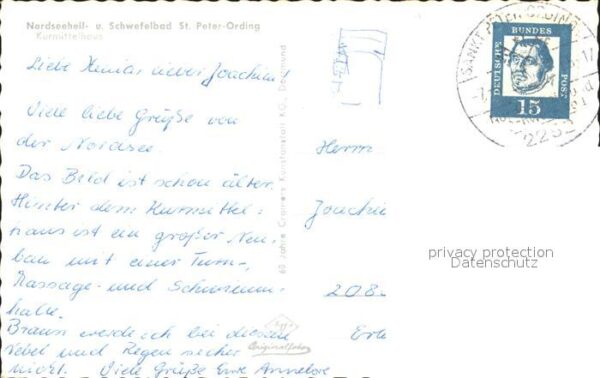 Nordseeheil- u. Schwefelbad St. Peter-Ording
Kurmittelhaus
Liebe Xenia, lieber Joachim!
Viele liebe Grüße von
der Nordsee.
Das Bild ist schon älter.
Hinter dem Kurmittel=
haus ist ein großer Neu=
bau mit einer Turn-,
Massage- und Schwimm=
halle.
Braun werde ich bei diesem
Nebel und Regen sicher
nicht. Viele Grüße Eure Annelore
60 Jahre Cramers Kunstanstalt KG., Dortmund
Originalfoto
DEUTSCHE BUNDES POST
15
SANKT PETER-ORDING
2252
Herrn
Joachim
208
privacy protection
Datenschutz